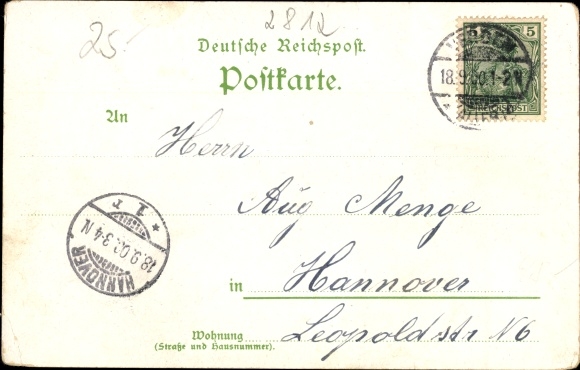 2812
25.-
Deutsche Reichspost.
Postkarte.
5
REICHSPOST
18.9.00.1-2N
An
Herrn
Aug Menge
HANNOVER
18.9.00.3-4N
* 1 r
in Hannover
Wohnung
(Straße und Hausnummer).
Leopoldstr N6